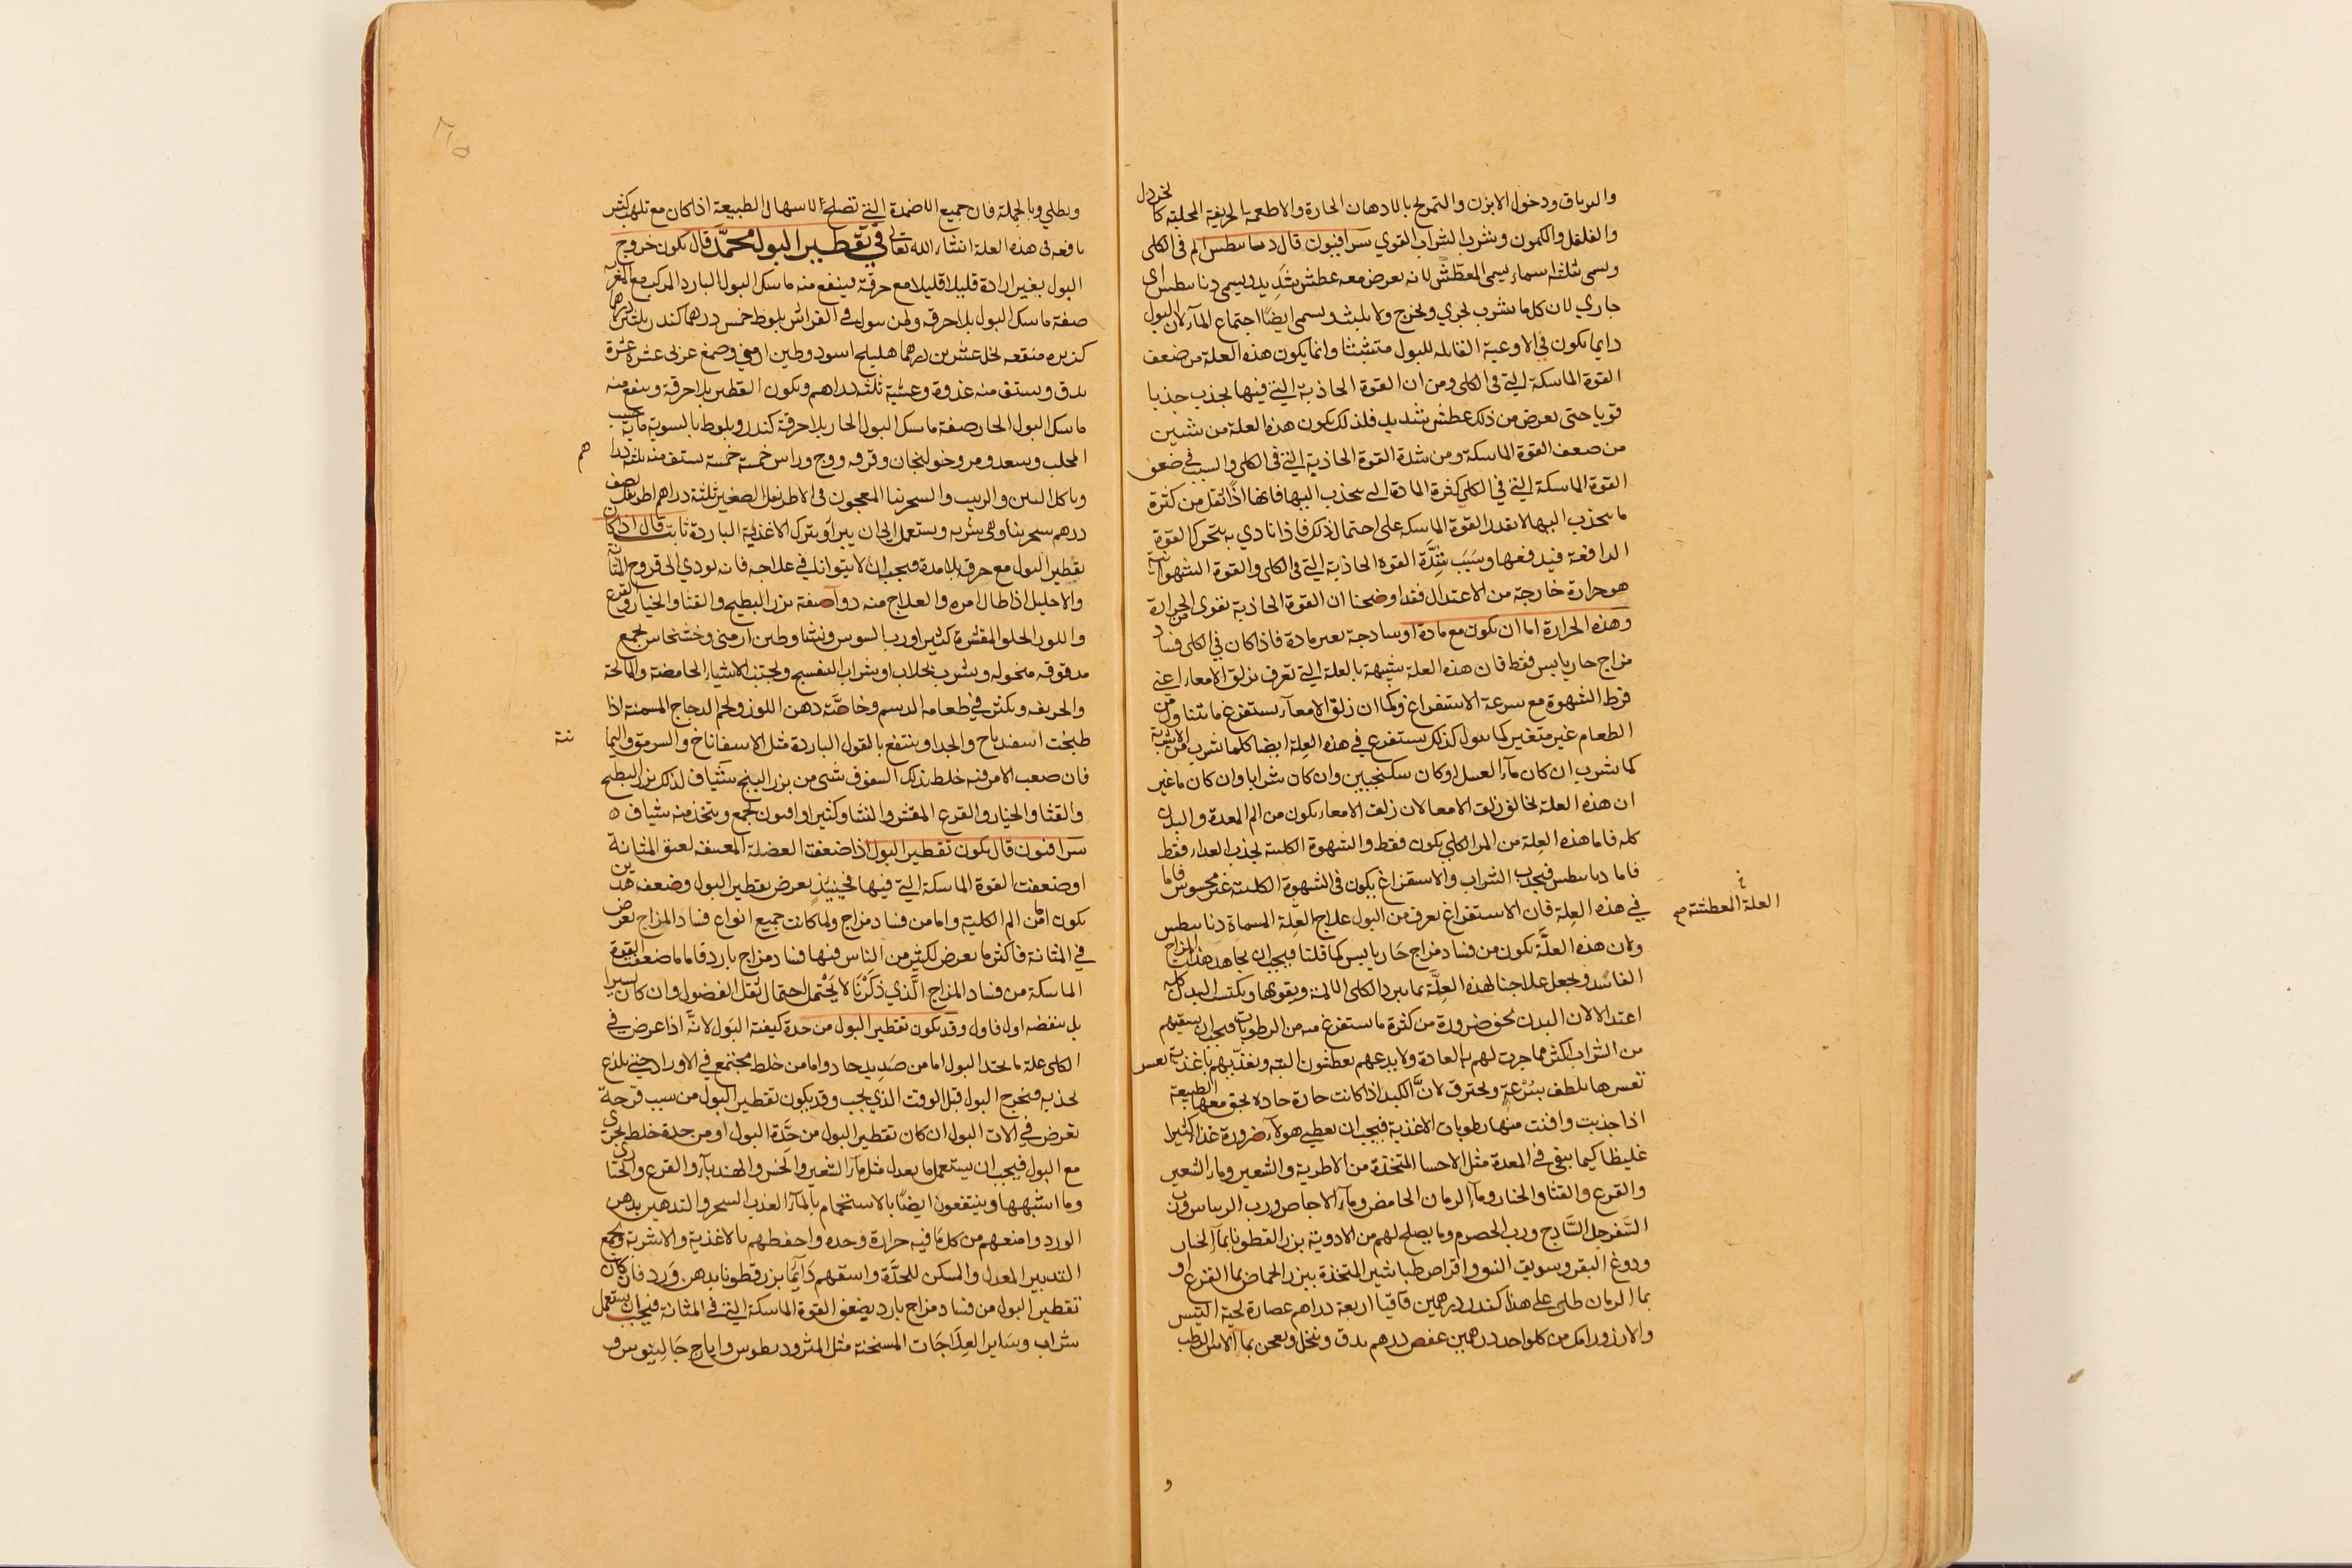 والترياق ودخول الابزن والتمريخ بالادهان الحارة والاطعمة الحريفة المحللة كالخردل
والفلفل والكمون وشرب الشراب القوي سرافيون قال ديانيطس الم في الكلى
ويسمى بثلثة اسماء يسمى المعطش لانه يعرض معه عطش شديد ويسمى ديانيطس اي
جاري لان كل ما شرب يجري ويخرج ولا يلبث ويسمى ايضا اجتماع المآء لان البول
دايما يكون في الاوعية القابله للبول متشبثا وانما يكون هذه العلة من ضعف
القوة الماسكة التي في الكلى ومن ان القوة الجاذبة التي فيها تجذب جذبا
قويا حتى يعرض من ذلك عطش شديد فلذلك يكون هذه العلة من شيئين
من ضعف القوة الماسكة ومن شدة القوة الجاذبة التي في الكلى والسبب في ضعف
القوة الماسكة التي في الكلى كثرة المادة التي تنجذب اليها فانها اذا ثقل من كثرة
ما ينجذب اليها لا تقدر القوة الماسكه على احتمال ذلك فاذا تأذي به يتحرك القوة
الدافعة فيدفعها وسبب شدة القوة الجاذبة التي في الكلى والقوة الشهوانية
هو حرارة خارجة من الاعتدال فقد اوضحنا ان القوة الجاذبة تقوى من الحرارة
وهذه الحرارة اما ان يكون مع مادة او ساذجة بغير مادة فاذا كان في الكلى فساد
مزاج حار يابس فقط فان هذه العلة شبيهة بالعلة التي تعرف بزلق الامعاء اعني
فرط الشهوة مع سرعة الاستفراغ وكما ان زلق الامعآء يستفرغ ما يتناول من
الطعام غير متغير كذلك يستفرغ في هذه العلة ايضا كلما شرب من الاشربة
كما شرب ان كان مآء العسل او كان سكنجبين وان كان شرابا وان كان ما غير
ان هذه العلة تخالف زلق الامعا لان زلق الامعاء يكون من الم المعدة والبدن
كله فاما هذه العلة من الم الكلى يكون فقط والشهوة الكلبية تجذب الغذاء فقط
فاما ديانيطس فيجذب الشراب والاستفراغ يكون في الشهوة الكلبية غير محسوس فاما
في هذه العلة فان الاستفراغ يعرف من البول علاج العلة المسماة ديانيطس
العلة المعطشة صح
ولان هذه العلة يكون من فساد مزاج حار يابس كما قلنا فيجب ان يجاهد هذا المزاج
الفاسد ونجعل علاجنا لهذه العلة بما يبرد الكلى الالمة ويقويها ويكتسب البدن كله
اعتدالا لان البدن يجف ضرورة من كثرة ما يستفرغ منه من الرطوبات فيجب ان يسقيهم
من الشراب اكثر مما جرت لهم به العادة ولا يدعهم يعطشون البتة ويغذيهم باغذية يعسر
تغيرها بلطف بسرعة ويحترق لان الكبد اذا كانت حارة حادة يجف معها الطبيعة
اذا جذبت وافنت منها رطوبات الاغذية فيجب ان يعطي هولآء ضرورة غذا كثيرا
غليظا كيما يبقى في المعدة مثل الاحسا المتخذة من الاطرية والشعير وماء الشعير
والقرع والقثا والخيار ومآء الرمان الحامض ومآء الاجاص ورب الريباس ورب
السفرجل الساذج ورب الحصرم وما يصلح لهم من الادوية بزر القطونا بمآء الخيار
ودوغ البقر وسويق النبق واقراص طباشير المتخذة ببزر الحماض بما القرع او
بما الرمان طلى على هذا كندر درهمين قاقيا اربعة دراهم عصارة لحية التيس
والارز وراﻣك من كلواحد درهمين عفص درهم يدق وينخل ويعجن بما الآس الرطب
ويطلى وبالجملة فان جميع الاضمدة التي تصلح الاسهال الطبيعة اذا كان مع تلهب كثير
نافعه في هذه العلة انشاء الله تعالى في تقطير البول محمد قال يكون خروج
البول بغير ارادة قليلا قليلا مع حرقة فينفع منه ماسك البول البارد المركب مع المغرة
صفة ماسك البول بلا حرقة ولمن يبول في الفراش بلوط خمس درهما كندر ثلثين درهما
كزبره منقعه بخل عشرين درهما هليلج اسود وطين ارمني وصمغ عربي عشرة عشرة
يدق ويستف منه غذوة وعشية ثلثة دراهم ويكون التقطير بلا حرقة وينفع منه
ماسك البول الحار صفة ماسك البول الحار بلا حرقة كندر وبلوط بالسوية مائة حب
المحلب وسعد ومر وخولنجان وقرفه ووج وراسن خمسة خمسة يستف منه ثلثة دراهم
وياكل التين والزبيب والسجزينا المعجون في الاطريفل الصغير ثلثة دراهم اطريفل نصف
درهم سجزينا وهى شربه ويستعمل الى ان يبرأ ويترك الاغذية الباردة ثابت قال اذا كان
تقطير البول مع حرقه بلا مدة فيجب ان لا يتوانا في علاجه فانه يودي الى قروح المثانة
والاحليل اذا طال امره والعلاج منه دوآء صفة بزر البطيخ والقثا والخيار والقرع
واللوز الحلو المقشرة كثيرا ورب السوس ونشا وطين ارمني وخشخاش يجمع
مدقوقه منخوله ويشرب بجلاب او شراب البنفسج ويجتنب الاشياء الحامضة والمالحة
والحريفه ويكثر في طعامه الدسم وخاصة دهن اللوز ولحم الدجاج المسمنة اذا
طبخت اسفندباج والجدا وينتفع بالبقول الباردة مثل الاسفاناخ والسرمق واليمانية
فان صعب الامر فيه خلط بذلك السفوف شى من بزر البنج شياف لذلك بزر البطيخ
والقثا والخيار والقرع المقشر والنشا وكثيرا وافيون يجمع ويتخذ منه شياف ٥
سرافيون قال يكون تقطير البول اذا ضعفت العضلة المعينة لعنق المثانة
او ضعفت القوة الماسكة التي فيها فحينئذ يعرض تقطير البول وضعف هذين
يكون اما من الم الكلية واما من فساد مزاج ولما كانت جميع انواع فساد المزاج تعرض
في المثانة فاكثر ما يعرض لكثير من الناس فيها فساد مزاج بارد فاما ما ضعف القوة
الماسكة من فساد المزاج الذي ذكرنا لا يحتمل احتمال ثقل الفضول وان كان يسيرا
بل ينفضه اول فاول وقد يكون تقطير البول من حدة كيفية البول لانه اذا عرض في
الكلى علة ما يحتد البول اما من صديد حاد واما من خلط مجتمع في الاوراد حتى يلذع
بحذيه فيخرج البول قبل الوقت الذي يجب وقد يكون تقطير البول من سبب قرحة
تعرض في الات البول ان كان تقطير البول من حدة البول او من حدة خلط يجري
مع البول فيجب ان يستعمل ما يعدل مثل مآء الشعير والخس والهندبآء والقرع والخيار
وما اشبهها وينتفعون ايضا بالاستحمام بالمآء العذب السخن والتدهين بدهن
الورد وامنعهم من كل ما فيه حرارة وحده واحفظهم بالاغذية والاشربة وبجميع
التدبير المعدل والمسكن للحدة واسقهم دآئما بزر قطونا بدهن ورد فان كان
تقطير البول من فساد مزاج بارد يضعف القوة الماسكة التي في المثانة فيجب ان يستعمل
شراب وساير العلاجات المسخنة مثل المثروديطوس وايارج جالينوس و